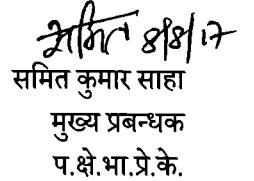 समित 8/8/17
समित कुमार साहा
मुख्य प्रबन्धक
प.क्षे.भा.प्रे.के.